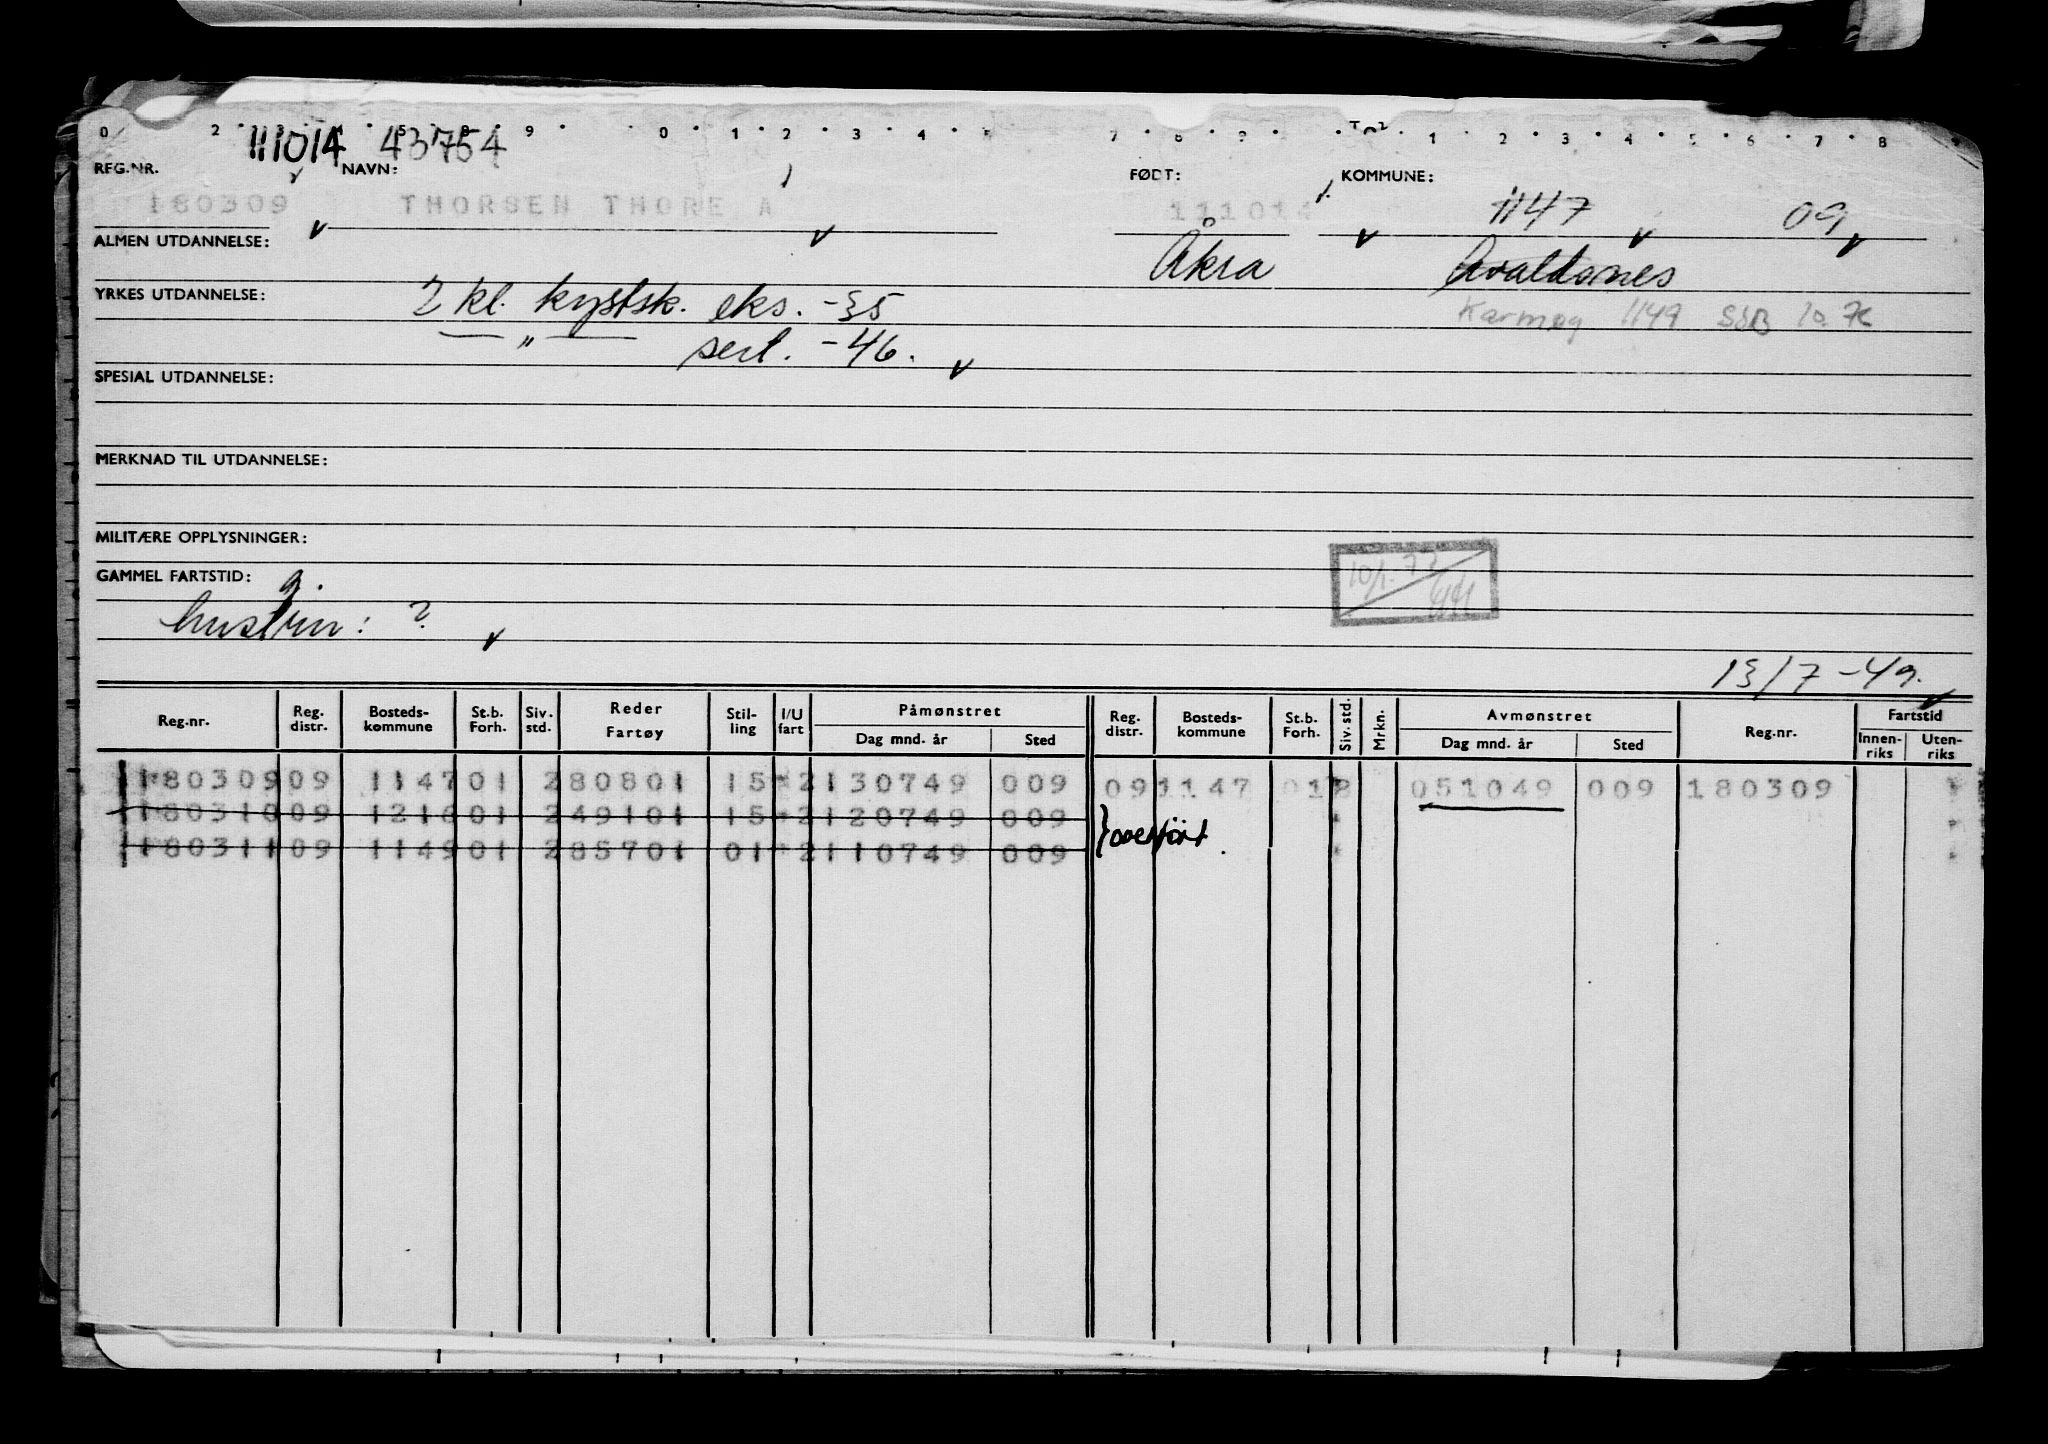 111014 43754
REG.NR. NAVN: FØDT: KOMMUNE:
180309 THORSEN THORE A 111014 1147 09
ALMEN UTDANNELSE: Åkra Avaldsnes
YRKES UTDANNELSE: 2 kl. kystsk. eks. -35 Karmøy 1149
" sert. -46.
SPESIAL UTDANNELSE:
MERKNAD TIL UTDANNELSE:
MILITÆRE OPPLYSNINGER:
GAMMEL FARTSTID: g.
hustru: ?
10/1.72
13/7-49.
Reg.nr. Reg. distr. Bosteds-kommune St.b. Forh. Siv. std. Reder Fartøy Stil-ling I/U fart Påmønstret Dag mnd. år Sted Reg. distr. Bosteds-kommune St.b. Forh. Siv. std. Mrkn. Avmønstret Dag mnd. år Sted Reg.nr. Fartstid Innen-riks Uten-riks
180309 09 1147 01 2 80801 15 *2 130749 009 09 1147 01 051049 009 180309
180310 09 1216 01 2 49101 15 *2 120749 009 } overført
180311 09 1149 01 2 85701 01 *2 110749 009